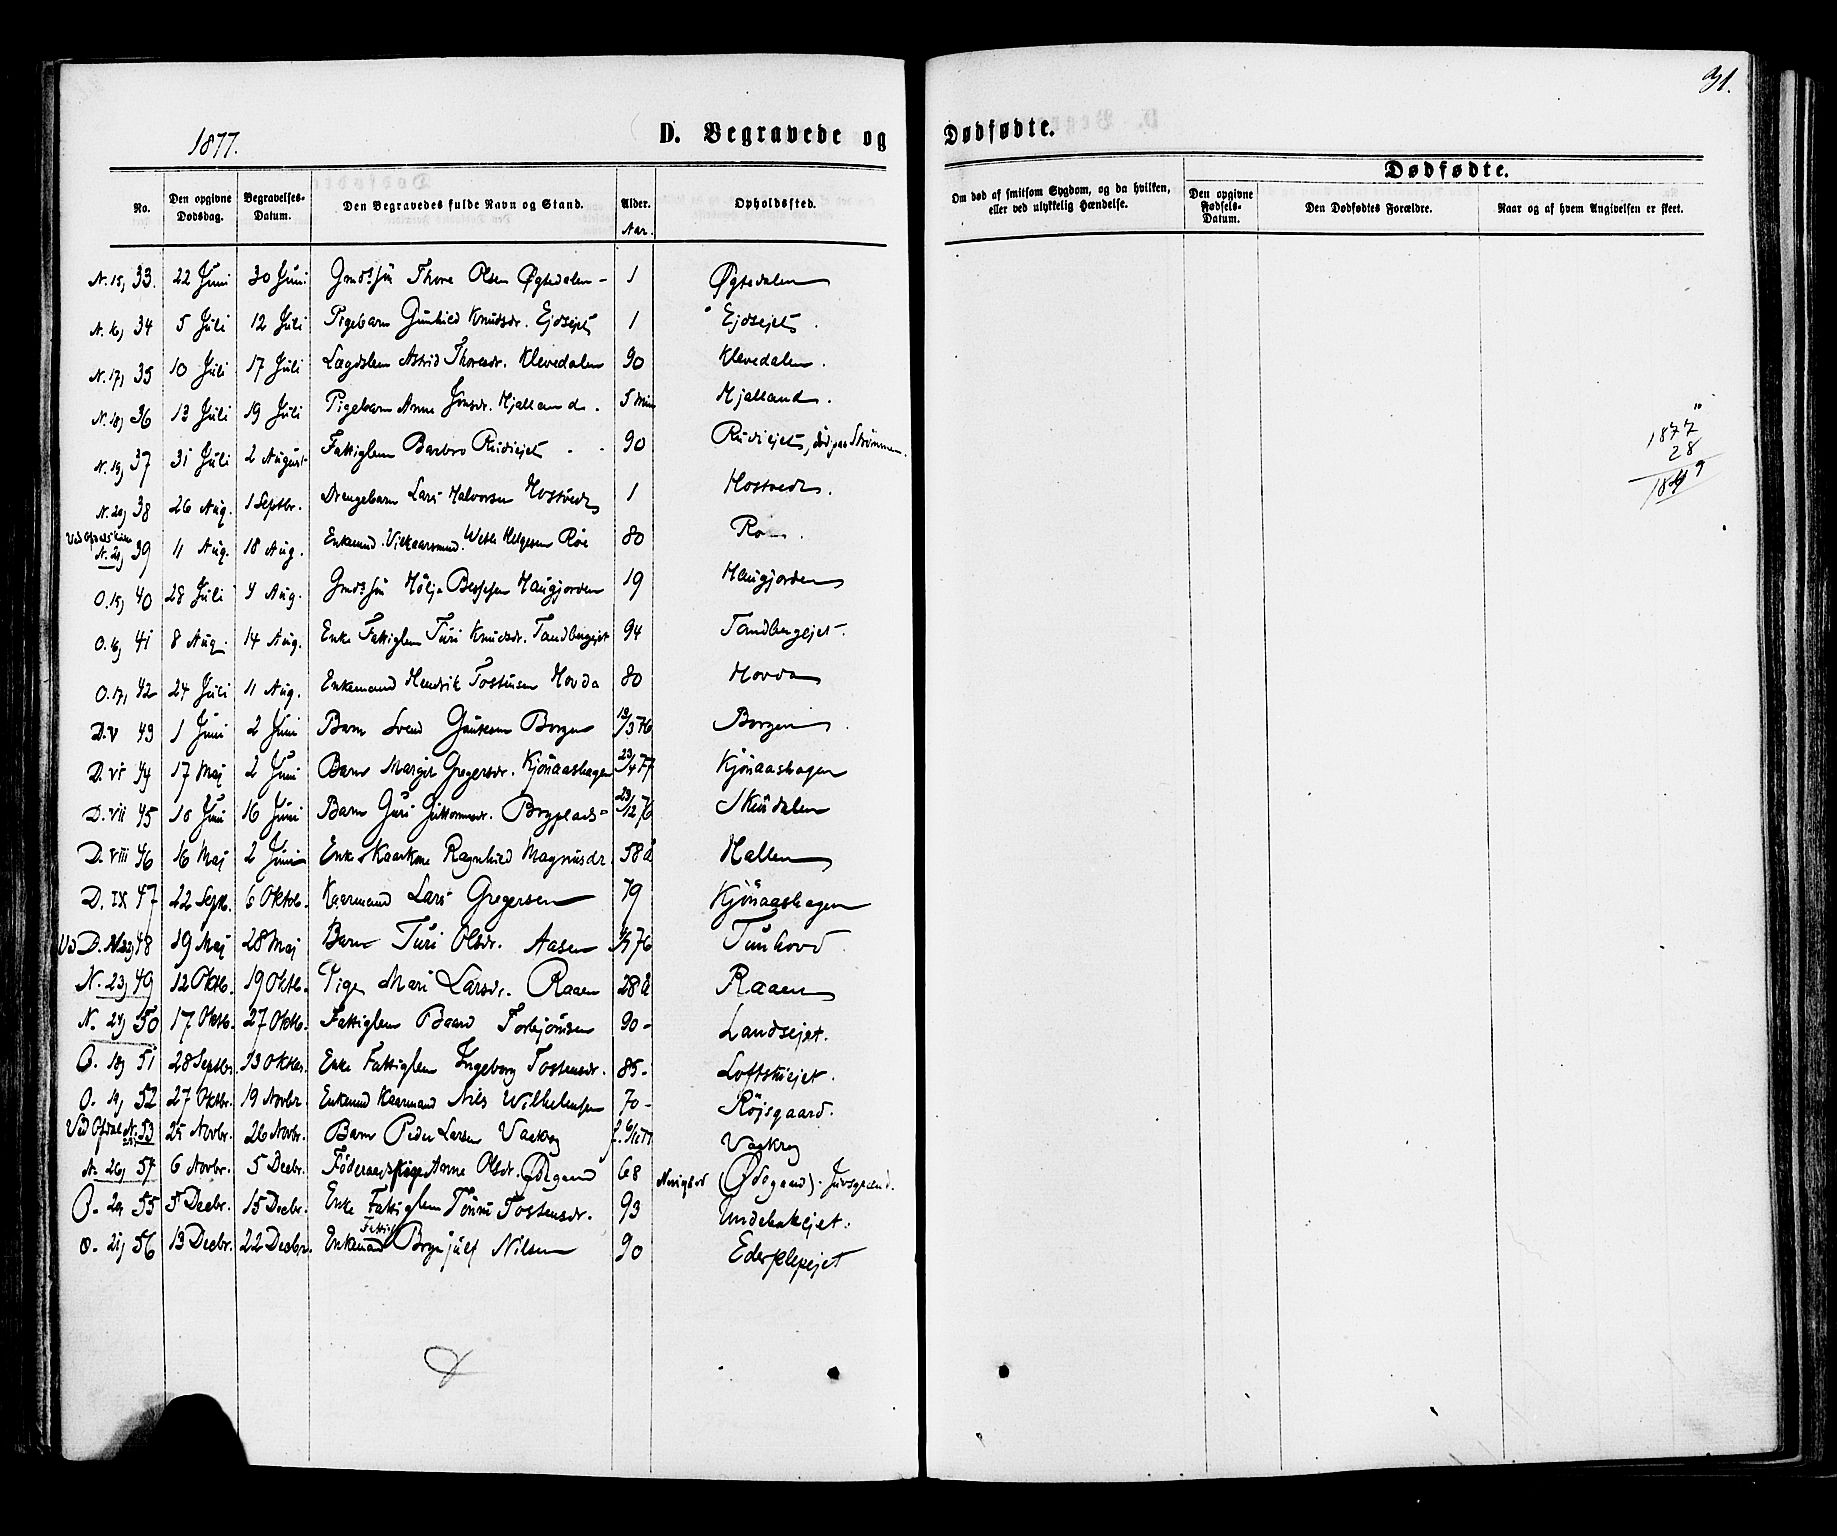 91.
1877.
D. Begravede og Dødfødte.
No. Den opgivne Dødsdag. Begravelses-Datum. Den Begravedes fulde Navn og Stand. Alder. Aar. Opholdssted.
Om død af smitsom Sygdom, og da hvilken, eller ved ulykkelig Hændelse.
Dødfødte.
Den opgivne Fødsels-Datum. Den Dødfødtes Forældre. Naar og af hvem Angivelsen er skeet.
N. 15, 33. 22 Juni 30 Juni Thore Olsen Øgtedalen 1 Øgtedalen
N. 16, 34 5 Juli 12 Juli Pigebarn Gunhild Knudsdr. Ejdsejet 1 Ejdsejet.
N. 17, 35 10 Juli 17 Juli Lægdslem Astrid Thoresdr. Klevedalen 90 Klevedalen.
N. 18, 36 13 Juli 19 Juli Pigebarn Anne Jonsdr. Hjalland. 5 Min Hjalland.
N. 19, 37 31 Juli 2 August Fattiglem Barbro Rudiejet 90 Rudiejet, død paa Strømmen.
N. 20, 38 26 Aug. 1 Septbr. Drengebarn Lars Halvorsen Hostvedt 1 Hostvedt.
N. 21, 39 11 Aug. 18 Aug. Enkemnd. Vilkaarsmnd. Helgesen Roe 80 Roe.
O. 15, 40 28 Juli 4 Aug. Haugjorden 19 Haugjorden
O. 16, 41 8 Aug. 14 Aug. Enke Fattiglem Turi Knudsdr. Tandbergejet 94 Tandbergejet.
O. 17, 42 24 Juli 11 Aug. Enkemand Hendrik Tostensen Hovda 80 Hovda
D. V 43 1 Juni 2 Juni Barn Svend Borgen 12/3 76 Borgen.
D. VI 44 17 Maj 2 Juni Barn Margit Gregersdr. Kjønaashagen 23/4 77 Kjønaashagen
D. VII 45 10 Juni 16 Juni Barn Guri Guttormsdr. Bryplads 23/12 76 Skudalen
D. VIII 46 16 Maj 2 Juni Enke Kaarkone Ragnhild Magnusdr. 58 å Hallen
D. IX 47 22 Sept. 6 Oktob. Kaarmand Lars Gregersen 79 Kjønaashagen
Ved D. N. 22, 48 19 Maj 28 Maj Barn Turi Olsdr. Aasen 76 Tunhovd.
N. 23, 49 12 Oktb. 19 Oktb. Pige Mari Larsdr. Raaen 28 å Raaen
N. 24, 50 17 Oktb. 27 Oktb. Fattiglem Baard Torbjørnsen 90 - Landsejet.
O. 18, 51 28 Septbr. 13 Oktbr. Enke Fattiglem Ingeborg Tostensdr. 85 - Loftshiejet.
O. 19, 52 27 Oktbr. 19 Novbr. Enkemnd Kaarmand Nils Wilhelmsen 70 - Røjsgaard.
53 25 Novbr. 26 Novbr. Barn Peder Larsen Vaakrog Vaakrog
N. 26, 54 6 Novbr. 5 Decbr. Føderaads Pige Anne Olsdr. Ødegaard 68 (Ødegaard).
O. 20, 55 5 Decbr. 15 Decbr. Enke Fattiglem Tostensdr. 93 Undebakejet.
O. 21, 56 13 Decbr. 22 Decbr. Enkemand Fattigl Brynjulf Nilsen 90
1877
28
1849